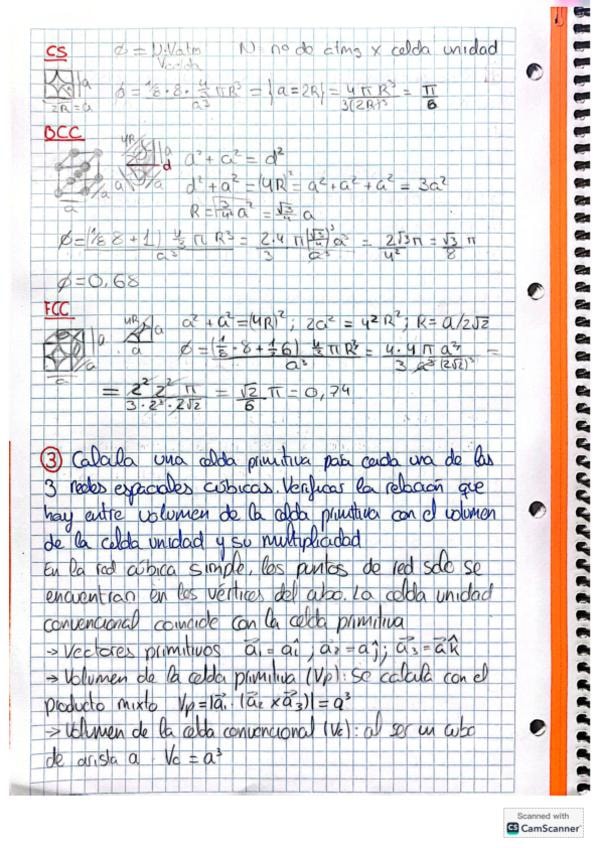 CS ϕ = N·Vatm / Vcelda N: nº de atms x celda unidad
2R = a a ϕ = (1/8 · 8 · 4/3 πR³) / a³ = {a=2R} = 4πR³ / 3(2R)³ = π/6
BCC 4R a d a² + a² = d²
a a a a d² + a² = (4R)² = a² + a² + a² = 3a²
R = √(3/4² a²) = √3/4 a
ϕ = (1/8 8 + 1) 4/3 π R³ / a³ = 2·4 π (√3/4)³ a³ / 3 a³ = 2√3 π / 4² = √3/8 π
ϕ = 0,68
FCC 4R a a a² + a² = (4R)² ; 2a² = 4² R² ; R = a/2√2
a a ϕ = (1/8 · 8 + 1/2 6) 4/3 π R³ / a³ = 4·4 π a³ / 3 a³ (2√2)³ =
= 2² 2² π / 3·2³·2√2 = √2/6 π = 0,74
③ Calcula una celda primitiva para cada una de las
3 redes espaciales cúbicas. Verificar la relación que
hay entre volumen de la celda primitiva con el volumen
de la celda unidad y su multiplicidad
En la red cúbica simple, los puntos de red solo se
encuentran en los vértices del cubo. La celda unidad
convencional coincide con la celda primitiva
→ Vectores primitivos a⃗₁ = aî ; a⃗₂ = aĵ ; a⃗₃ = ak̂
→ Volumen de la celda primitiva (Vp): se calcula con el
producto mixto Vp = |a⃗₁ · (a⃗₂ x a⃗₃)| = a³
→ Volumen de la celda convencional (Vc): al ser un cubo
de arista a Vc = a³
Scanned with
CS CamScanner